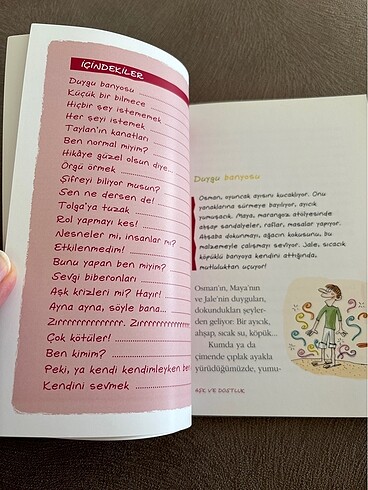 İÇİNDEKİLER
Duygu banyosu
Küçük bir bilmece
Hiçbir şey istememek
Her şeyi istemek
Taylan'ın kanatları
Ben normal miyim?
Hikâye güzel olsun diye...
Örgü örmek
Şifreyi biliyor musun?
Sen ne dersen de!
Tolga'ya tuzak
Rol yapmayı kes!
Nesneler mi, insanlar mı?
Etkilenmedim!
Bunu yapan ben miyim?
Sevgi biberonları
Aşk krizleri mi? Hayır!
Ayna ayna, söyle bana...
Zırrrrrrrrrrrrr. Zırrrrrrrrrrrrr
Çok kötüler!
Ben kimim?
Peki, ya kendi kendimleyken ben
Kendini sevmek
Duygu banyosu
Osman, oyuncak ayısını kucaklıyor. Onu
yanaklarına sürmeye bayılıyor, ayıcık
yumuşacık. Maya, marangoz atölyesinde
ahşap sandalyeler, raflar, masalar yapıyor.
Ahşaba dokunmayı, ağacın kokusunu, bu
malzemeyle çalışmayı seviyor. Jale, sıcacık
köpüklü banyoya kendini attığında,
mutluluktan uçuyor!
Osman'ın, Maya'nın
ve Jale'nin duyguları,
dokundukları şeyler-
den geliyor: Bir ayıcık,
ahşap, sıcak su, köpük...
Kumda ya da
çimende çıplak ayakla
yürüdüğümüzde, yumu-
AŞK VE DOSTLUK